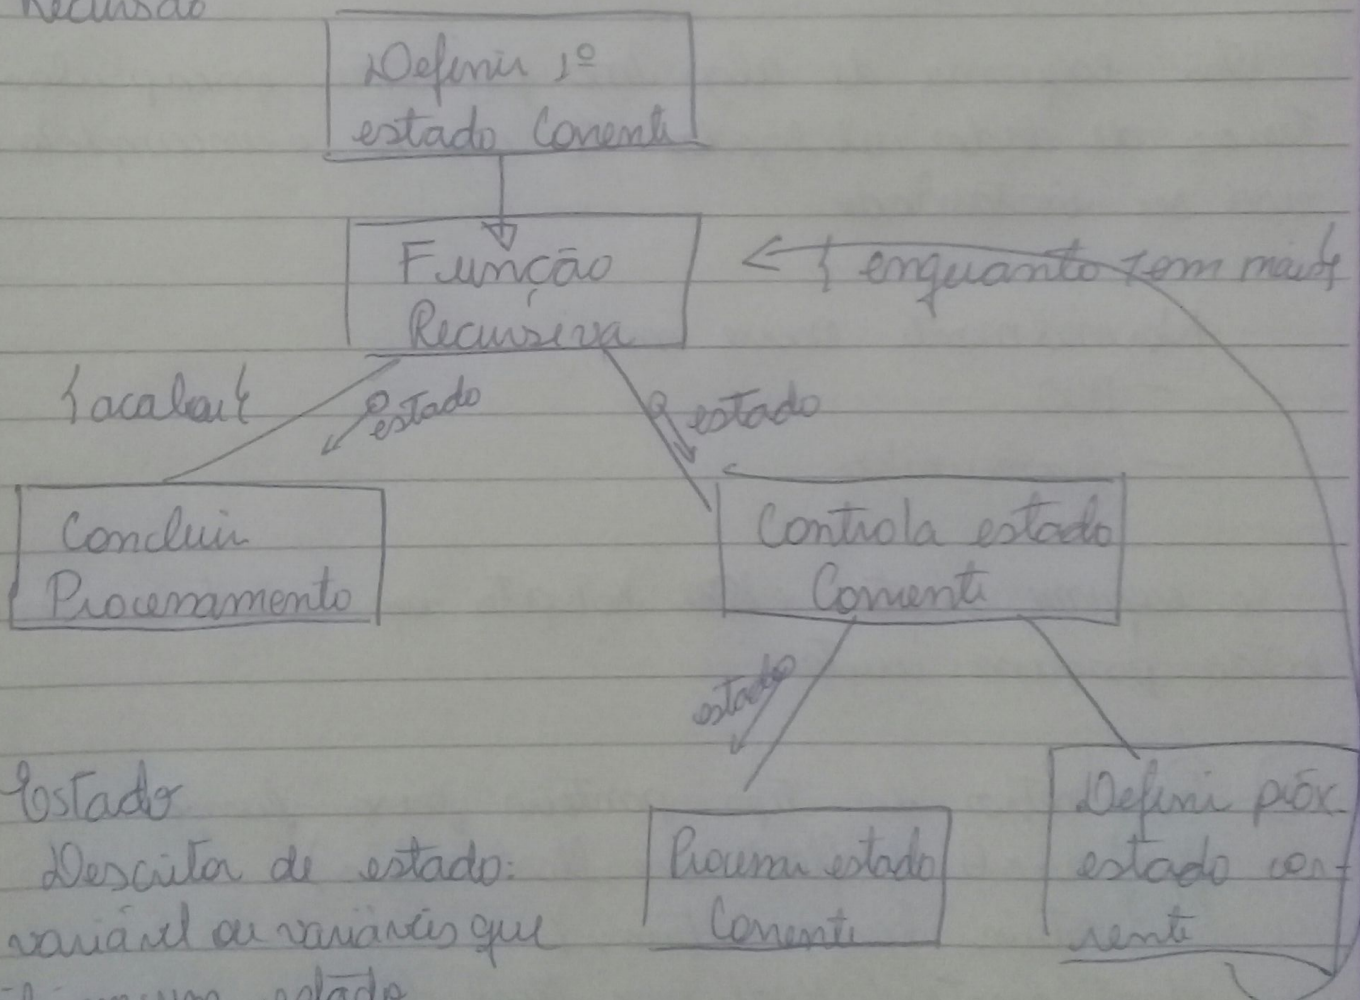 Recursão
Definir 1º
estado Corrente
Função
Recursiva
{ enquanto tem mais}
{acabou}
estado
estado
Concluir
Processamento
Controla estado
Corrente
estado
Processar estado
Corrente
Definir próx
estado cor-
rente
Estado
Descritor de estado:
variável ou variáveis que
um estado